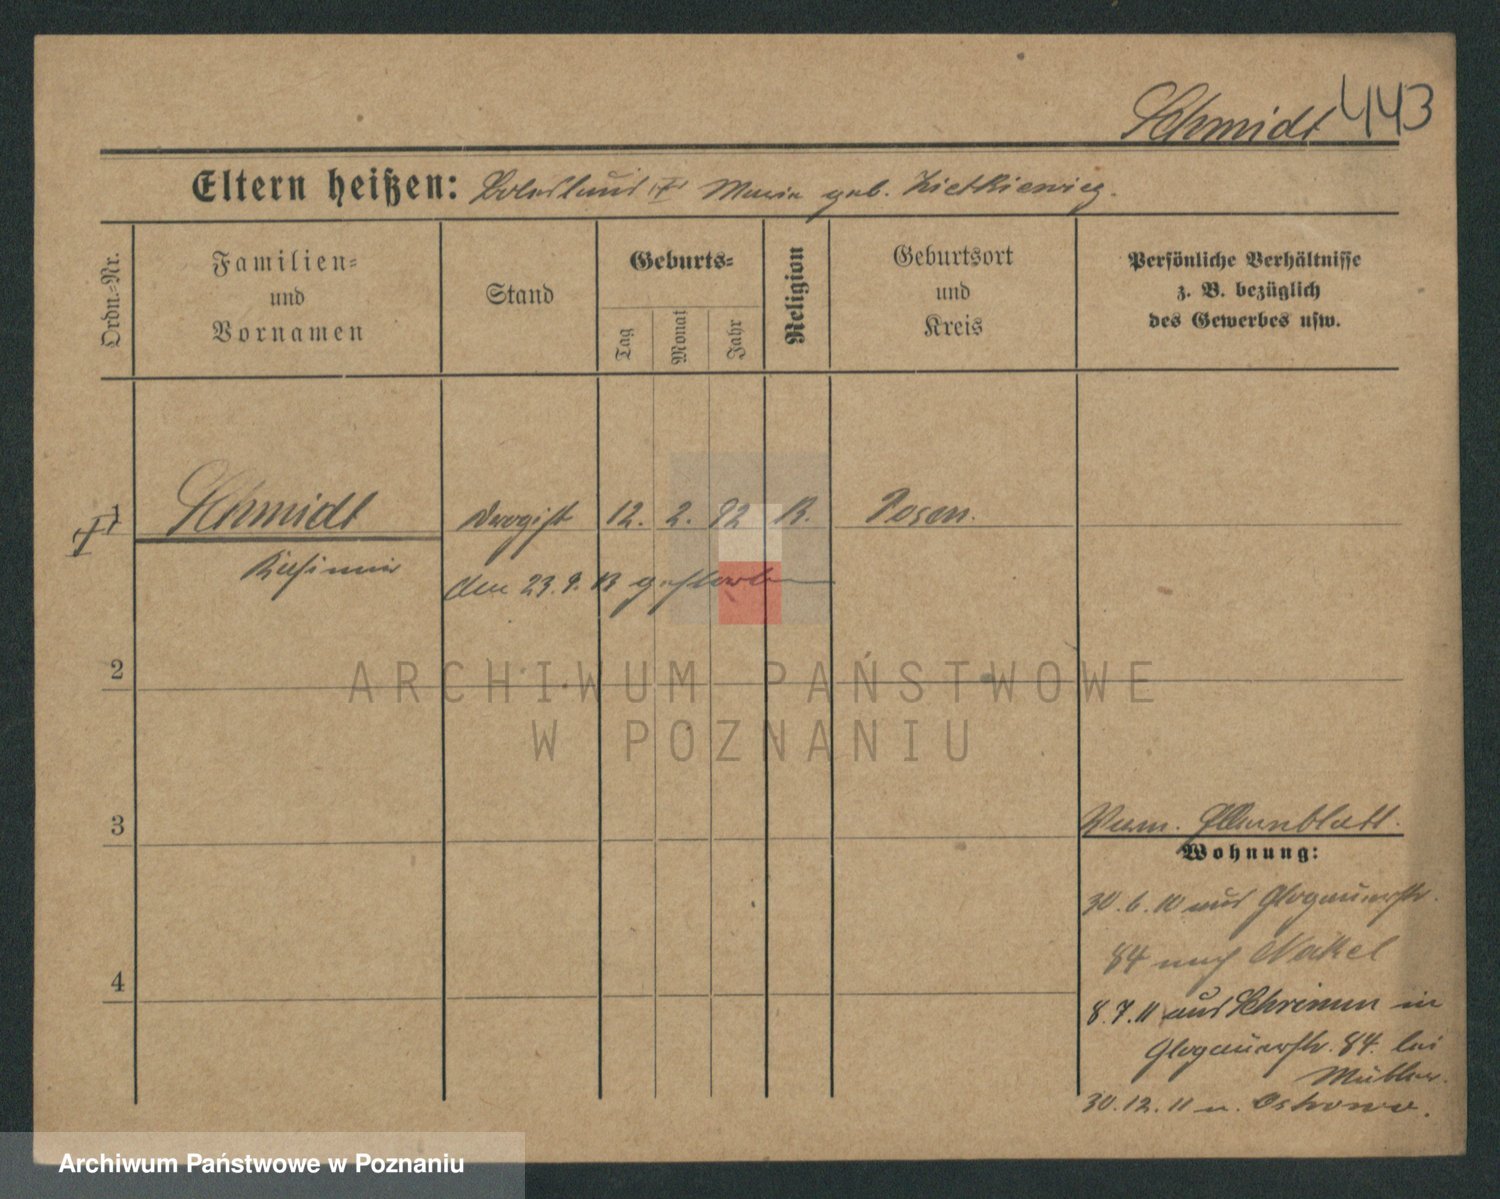 Schmidt 443
Eltern heißen: Boleslaus † Marie geb. Zietkiewicz.
Ordn.-Nr.
Familien-
und
Vornamen
Stand
Geburts-
Tag
Monat
Jahr
Religion
Geburtsort
und
Kreis
Persönliche Verhältnisse
z. B. bezüglich
des Gewerbes usw.
1 Schmidt Drogist 12. 2. 92 K. Posen.
Kasimir
den 23.9.13 gestorben
2
ARCHIWUM PAŃSTWOWE
W POZNANIU
3
Elternblatt.
Wohnung:
30.6.10 aus Glogauerstr.
84 nach Nakel
4
8.7.11 aus Schrimm in
Glogauerstr. 84. bei
Mutter.
30.12.11 n. Ostrowo.
Archiwum Państwowe w Poznaniu